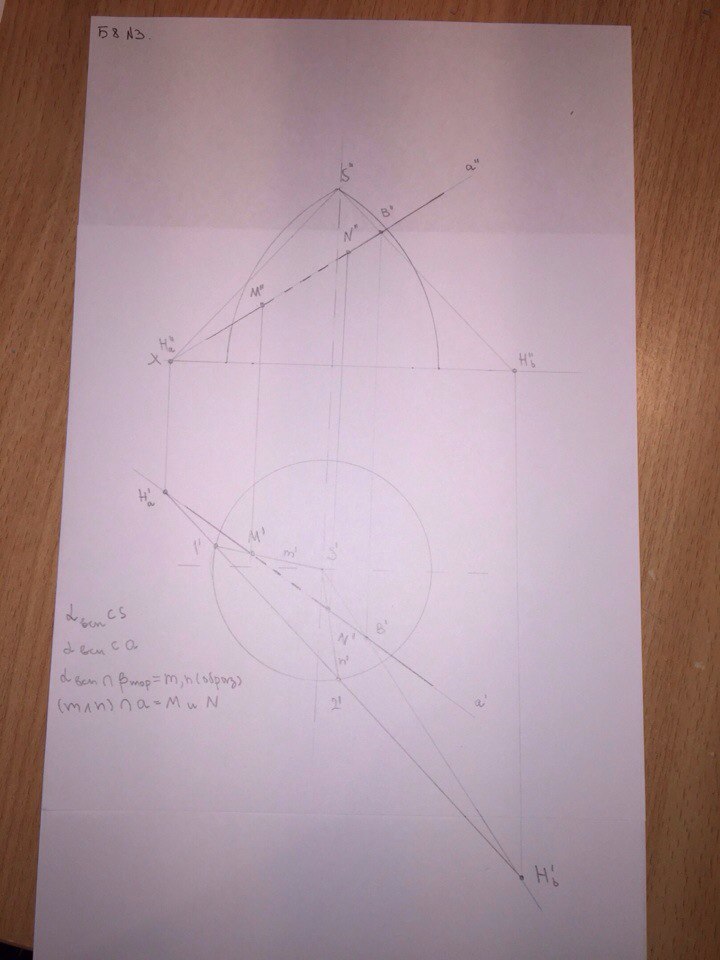 Б8 №3.
S"
a"
B"
N"
M"
H"a
X
H"b
H'a
1'
M'
m'
S'
N'
B'
n'
2'
a'
H'b
αвсп ⊂ S
αвсп ⊂ a
αвсп ∩ βтор = m, n (образ)
(m ∧ n) ∩ a = M и N